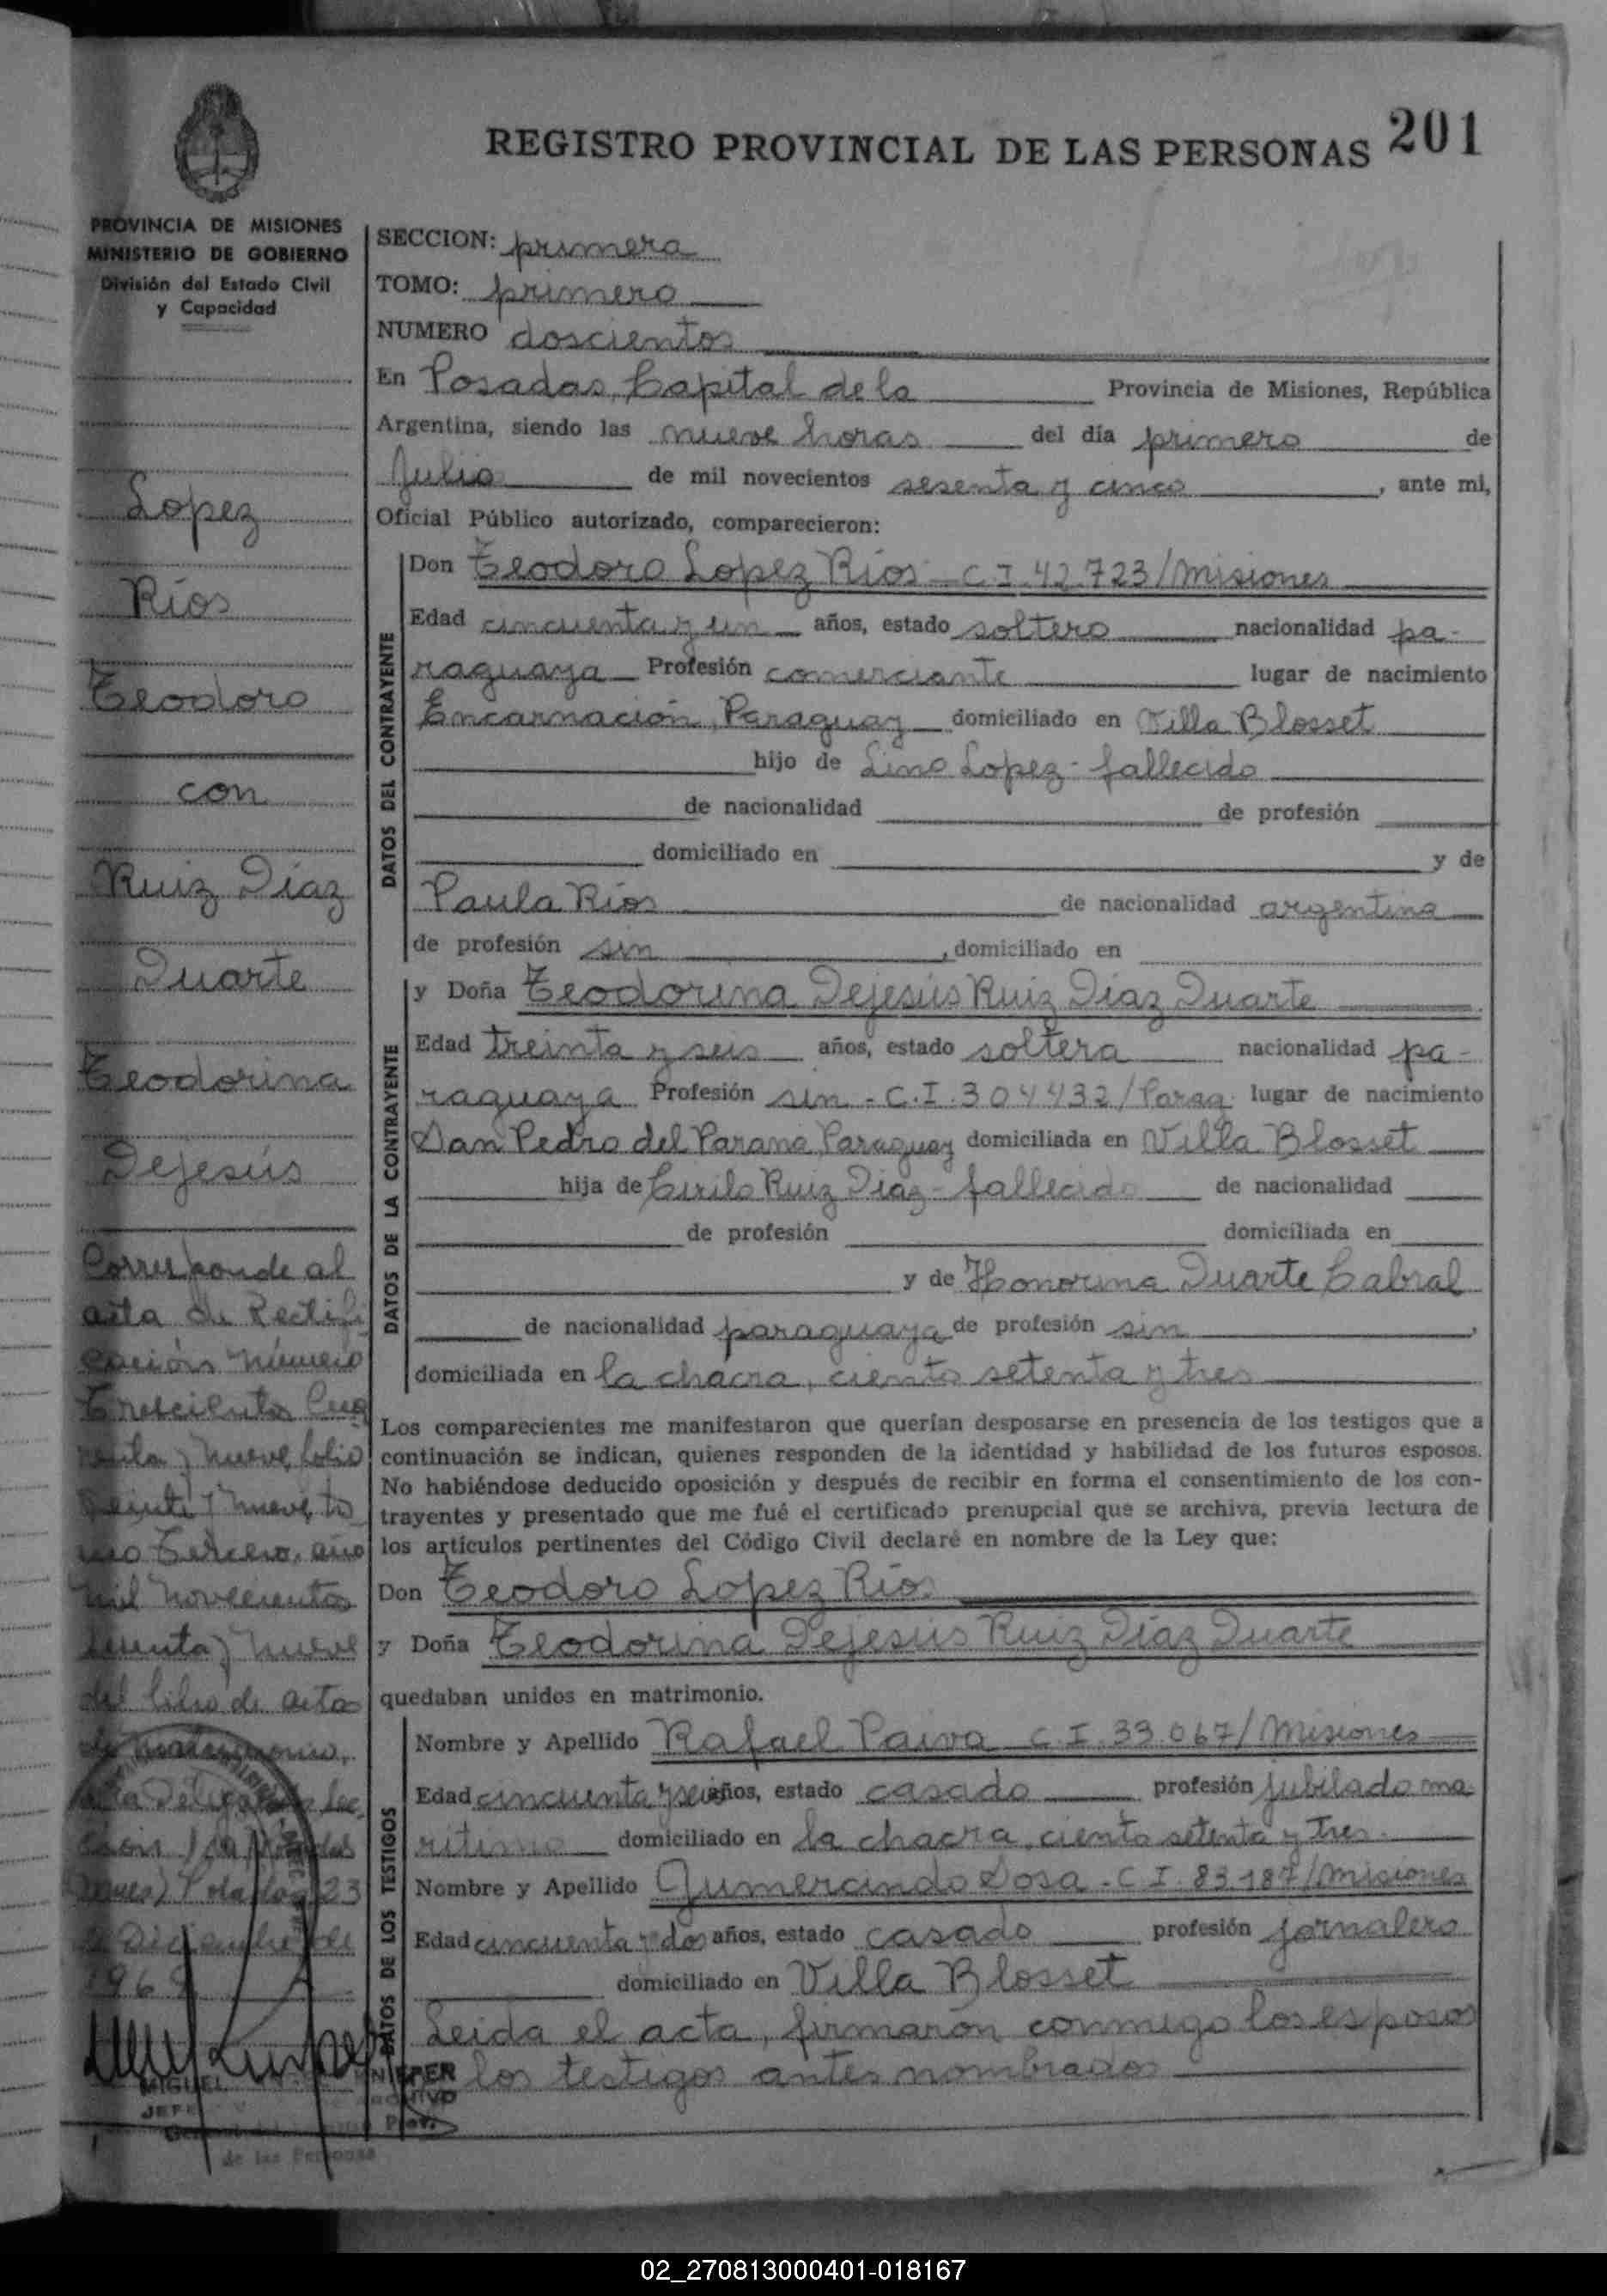 REGISTRO PROVINCIAL DE LAS PERSONAS 201
PROVINCIA DE MISIONES
MINISTERIO DE GOBIERNO
División del Estado Civil
y Capacidad
Lopez
Ríos
Teodoro
con
Ruiz Díaz
Duarte
Teodorina
Dejesús
Corresponde al
acta de Rectifi
cación número
Trescientos Cua
renta y nueve, folio
veinte y nueve, to
mo Tercero, año
mil novecientos
sesenta y nueve
del libro de actas
de matrimonio,
Posadas, 23
de Diciembre de
1969
MIGUEL
JEFE
de las Personas
SECCION: primera
TOMO: primero
NUMERO doscientos
En Posadas, Capital de la Provincia de Misiones, República
Argentina, siendo las nueve horas del día primero de
Julio de mil novecientos sesenta y cinco, ante mi,
Oficial Público autorizado, comparecieron:
DATOS DEL CONTRAYENTE
Don Teodoro Lopez Ríos - C.I. 42.723/Misiones
Edad cincuenta y un años, estado soltero nacionalidad pa-
raguaya Profesión comerciante lugar de nacimiento
Encarnación, Paraguay domiciliado en Villa Blosset
hijo de Lino Lopez - fallecido
de nacionalidad de profesión
domiciliado en y de
Paula Ríos de nacionalidad argentina
de profesión sin, domiciliado en
DATOS DE LA CONTRAYENTE
y Doña Teodorina Dejesús Ruiz Díaz Duarte
Edad treinta y seis años, estado soltera nacionalidad pa-
raguaya Profesión sin - C.I. 304432/Parag. lugar de nacimiento
San Pedro del Paraná, Paraguay domiciliada en Villa Blosset
hija de Cirilo Ruiz Díaz - fallecido de nacionalidad
de profesión domiciliada en
y de Honorina Duarte Cabral
de nacionalidad paraguaya de profesión sin,
domiciliada en la chacra, ciento setenta y tres
Los comparecientes me manifestaron que querían desposarse en presencia de los testigos que a
continuación se indican, quienes responden de la identidad y habilidad de los futuros esposos.
No habiéndose deducido oposición y después de recibir en forma el consentimiento de los con-
trayentes y presentado que me fué el certificado prenupcial que se archiva, previa lectura de
los artículos pertinentes del Código Civil declaré en nombre de la Ley que:
Don Teodoro Lopez Ríos
y Doña Teodorina Dejesús Ruiz Díaz Duarte
quedaban unidos en matrimonio.
DATOS DE LOS TESTIGOS
Nombre y Apellido Rafael Paiva C.I. 33.067/Misiones
Edad cincuenta y seis años, estado casado profesión jubilado ma-
rítimo domiciliado en la chacra, ciento setenta y tres.
Nombre y Apellido Gumercindo Sosa - C.I. 83.187/Misiones
Edad cincuenta y dos años, estado casado profesión jornalero
domiciliado en Villa Blosset
Leida el acta, firmaron conmigo los esposos
los testigos antes nombrados
02_270813000401-018167